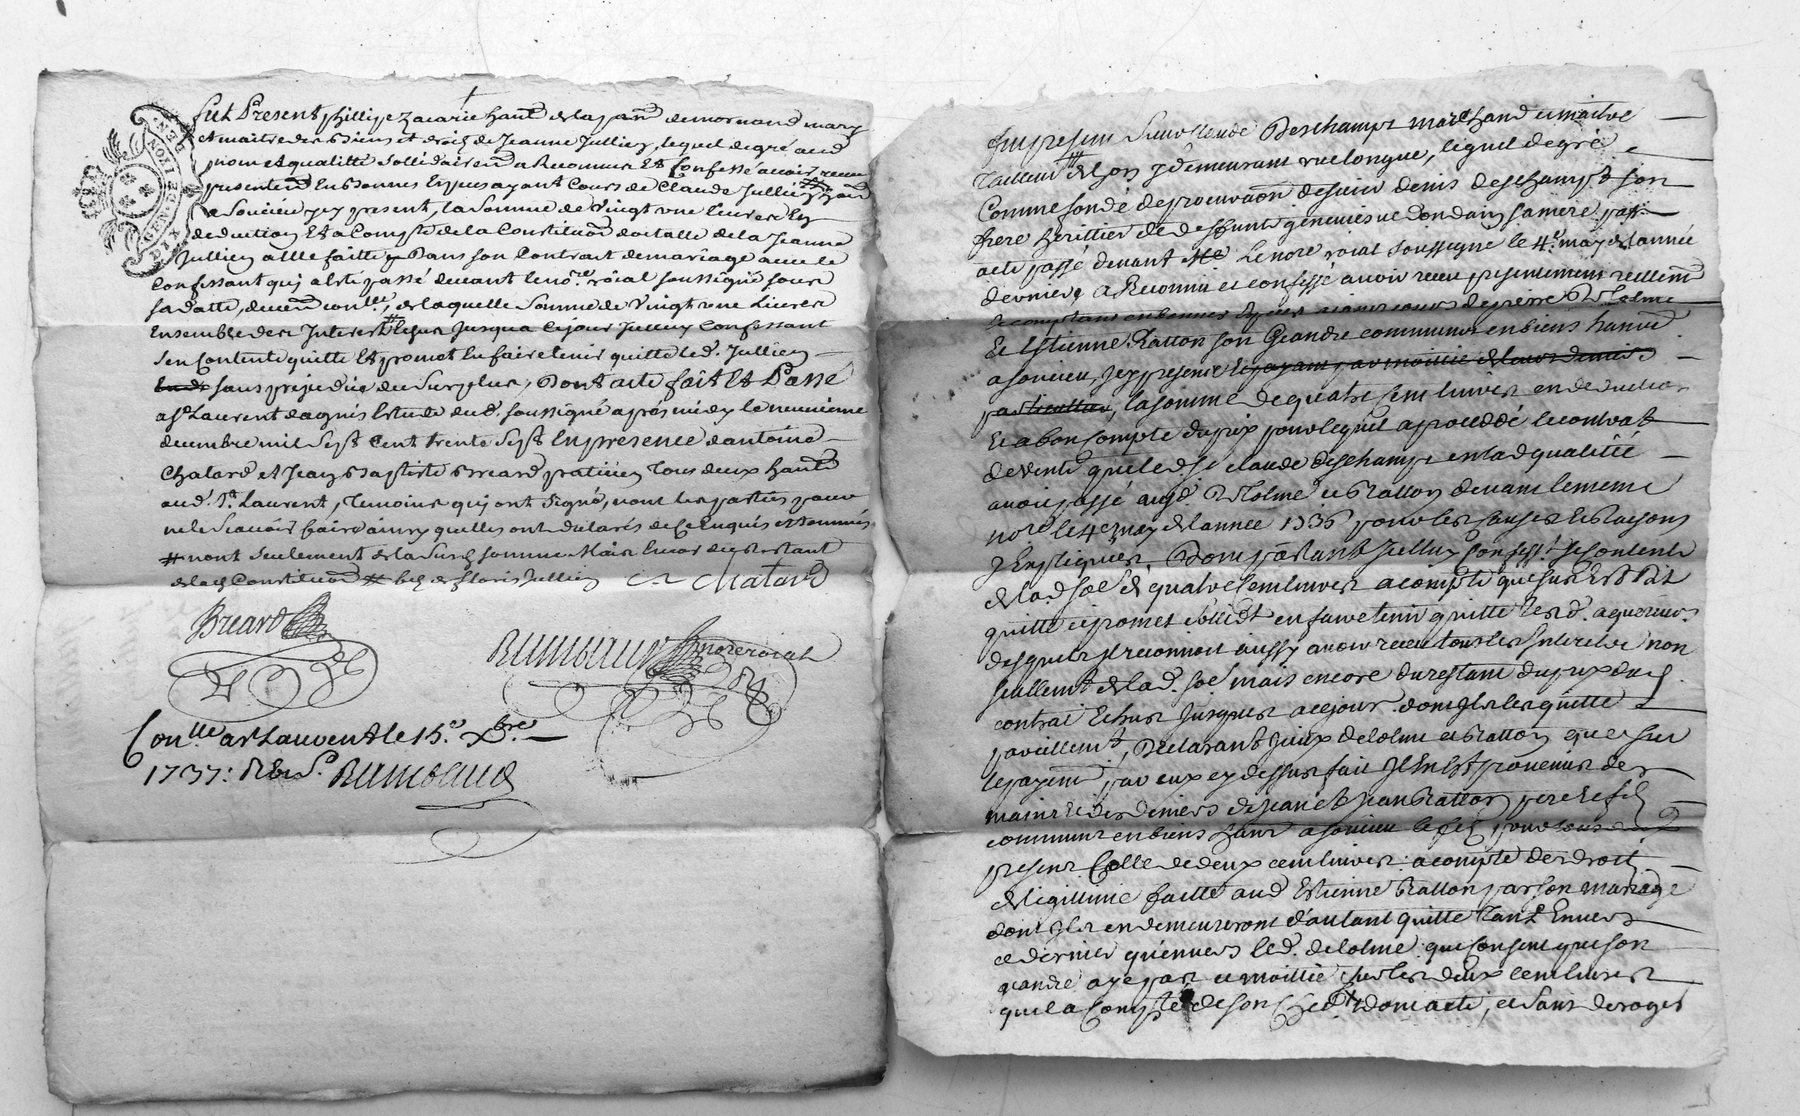 GENE.DE LION
DIX DEN
fut Present phillipe Zacarie hant de la par. de mornand mary
et maitre des biens et droits de Jeanne Jullien, lequel de gré aud
nom et qualitté sollidairemt a Reconnu Et Confessé avoir receu
presentemt En bonnes Espeses ayant Cours de Claude Jullien hant
a Soucieu yey present, la Somme de Vingt une livres En
deduction Et a Compte de la Constitution dotalle de la Jeanne
Jullien a Elle faitte Dans son Contrait de mariage avec le
Confessant quy a Eté passé devant le nore roial soussigné sous
sa datte, deuemt conllé, de laquelle Somme de Vingt une Livres
Ensemble des Interest # Echus Jusqua ce jour Jcelluy Confessant
s'en Contente quitte Et promet En faire tenir quitte led. Jullien
sans prejudice du Surplus, Dont acte fait Et Passé
a St Laurent dagnis Estude dud. soussigné apres midy le neuvieme
decembre mil Sept Cent trente Sept En presence d'antoine
Chalard et Jean Baptiste Breard praticien tous deux hant
aud. St Laurent, temoins quy ont signé, nont les parties pour
ne le Scavoir faire ainsy quelles ont declarés de Ce Enquis et sommés
# nont seulement de la Susd somme Mais Encor du restant
de lad Constitution #
Chalard
Breard
Rambaud nore roial
Conllé a St Laurent le 15e Xbre
1737: Rambaud
fut present Sieur Claude Deschamps marchand et maitre
tailleur de Lyon y demeurant rue longue, lequel de gré
Comme fondé de procuraon de sieur denis deschamps son
frere herittier de deffunte genevieve Dondain sa mere par
acte passé devant Le nore roial Soussigné le 4e may de l'année
derniere a Reconnu et confessé avoir receu presentement reellemt
et comptant en bonnes Especes aiant cours de pierre Delolme
Et Estienne Ratton son Geandre communs en biens hant
a Soucieu, yey present
la somme de quatre Cent livres en deduction
Et a bon Compte du prix pour lequel a procedé le contrat
de vente que led Sr claude deschamps en lad qualitté
avoir passé ausd Delolme et Ratton devant le meme
nore le 4e may de l'année 1736 pour les Causes Et Raisons
y Expliquées, Dont partant Jcelluy Confesst se Contente
de lad. Soe de quatre Cent livres a compte que sus Est dit
quitte et promet en faire tenir quitte lesd. aquereurs
desquels Jl reconnoit aussy avoir receu tous les Interets non
seullemt de lad. soe mais encore du restant du prix dud
contrat Echus Jusques a ce jour dont Jl les quitte
pareillemt, Declarant Jceux delolme et Ratton que sur
le payemt par eux cy dessus fait Jl En Est provenus des
mains Et des deniers de Jean et Jean Ratton pere et fils
communs en biens hant a Soucieu
present Celle de deux cent livres a compte des droits
de legitime faitte aud Estienne Ratton par son mariage
dont Jls en demeureront d'autant quitte tant Envers
ce dernier qu'envers led. delolme que Consent que son
geandre aye par et moittié sur les deux cent livres
quil a Compté de son Chef, dont acte, et sans deroger